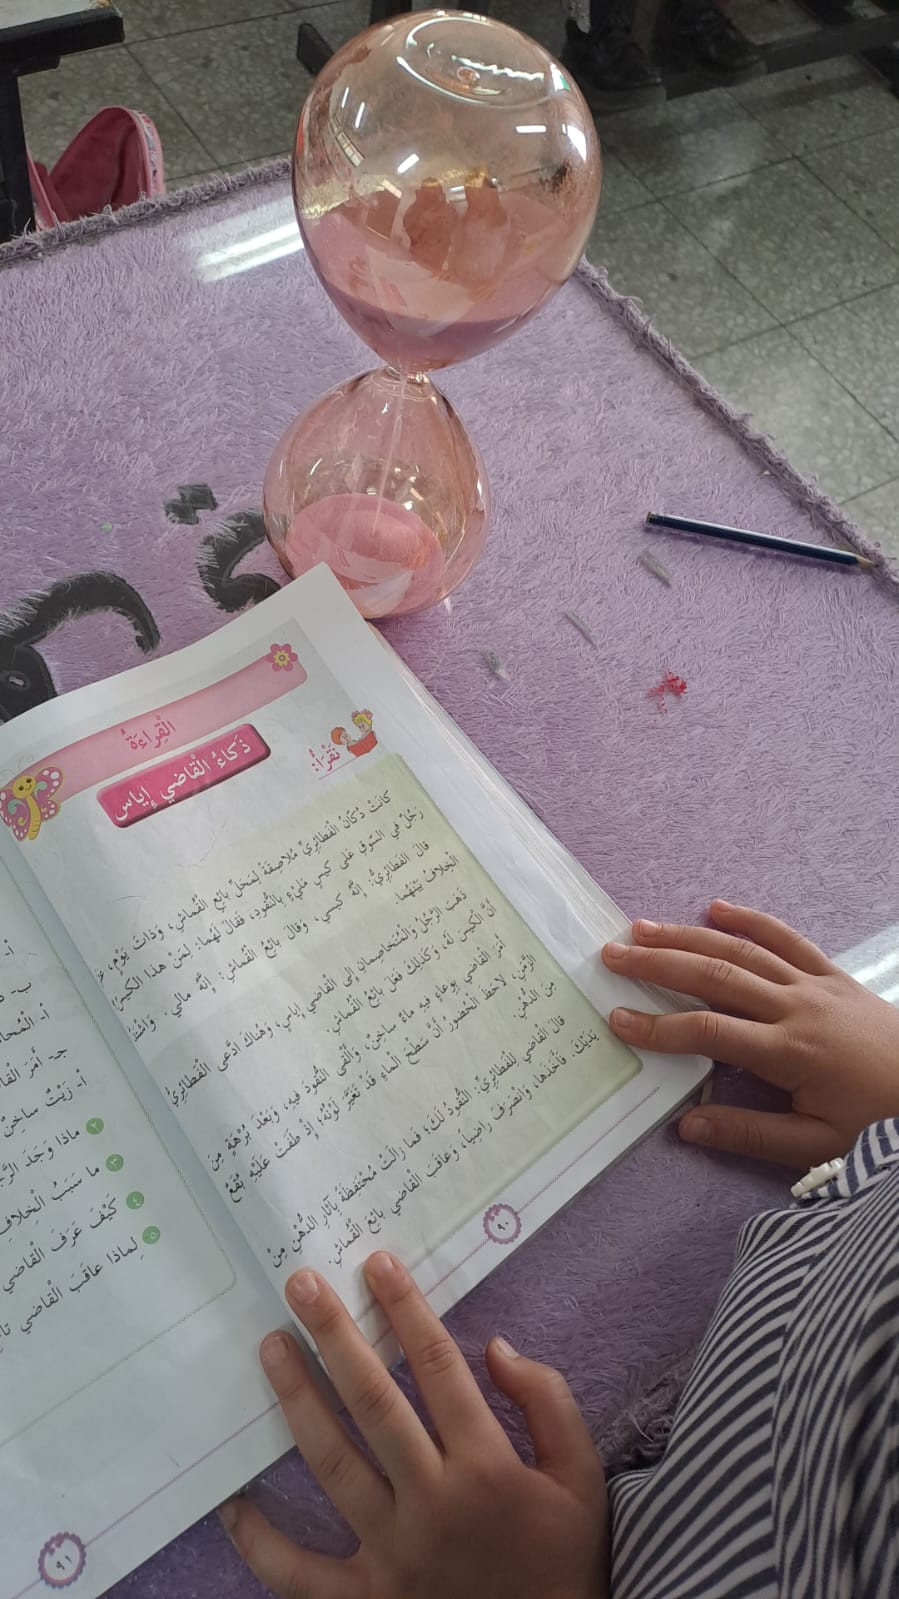 الْقِراءَةُ
ذَكاءُ الْقاضي إِياس
نَقْرَأُ:
كانَتْ دُكّانُ الْفَطائِرِيِّ مُلاصِقَةً لِمَحَلِّ بائِعِ الْقُماشِ، وَذاتَ يَوْمٍ،
رَجُلٌ في السّوقِ عَلى كيسٍ مَليءٍ بِالنُّقودِ، فَقالَ لَهُما: لِمَنْ هذا الْكيسُ
قالَ الْفَطائِرِيُّ: إِنَّهُ كيسي، وَقالَ بائِعُ الْقُماشِ: إِنَّهُ مالي.
الْخِلافُ بَيْنَهُما.
ذَهَبَ الرَّجُلُ وَالْمُتَخاصِمانِ إِلى الْقاضي إِياسٍ، وَهُناكَ ادَّعى الْفَطائِرِيُّ
أَنَّ الْكيسَ لَهُ، وَكَذلِكَ فَعَلَ بائِعُ الْقُماشِ.
أَمَرَ الْقاضي بِوِعاءٍ فيهِ ماءٌ ساخِنٌ، وَأَلْقى النُّقودَ فيهِ، وَبَعْدَ بُرْهَةٍ مِنَ
الزَّمَنِ، لاحَظَ الْحُضورُ أَنَّ سَطْحَ الْماءِ قَدْ تَغَيَّرَ لَوْنُهُ؛ إِذْ طَفَتْ عَلَيْهِ بُقَعٌ
مِنَ الدُّهْنِ.
قالَ الْقاضي لِلْفَطائِرِيِّ: النُّقودُ لَكَ، فَما زالَتْ مُحْتَفِظَةً بِآثارِ الدُّهْنِ مِنْ
يَدَيْكَ. فَأَخَذَها، وَانْصَرَفَ راضِياً، وَعاقَبَ الْقاضي بائِعَ الْقُماشِ.
٩٠
أ-
ب-
أ- الْمُحا
جـ- أَمَرَ الْقا
أ- زَيْتٌ ساخِنٌ
٢ ماذا وَجَدَ
٣ ما سَبَبُ الْخِلافِ
٤ كَيْفَ عَرَفَ الْقاضي
٥ لِماذا عاقَبَ الْقاضي
٩١